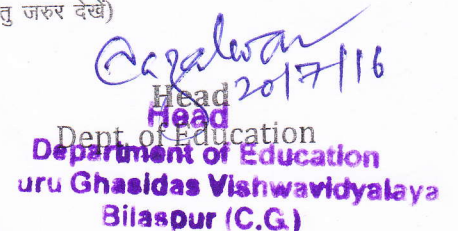 तु जरुर देखें)
20/7/16
Head
Head
Dept. of Education
Department of Education
uru Ghasidas Vishwavidyalaya
Bilaspur (C.G.)